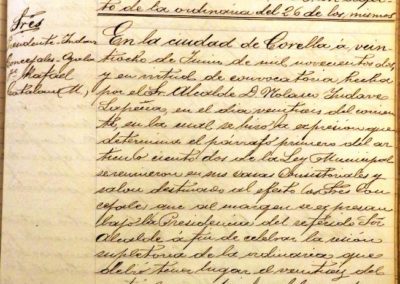 to de la ordinaria del 26 de los mismos
Sres
Presidente Yndave
Concejales Ayala
Rafael
Catalan M.
En la ciudad de Corella á vein
tiocho de Junio de mil novecientos dos
y en virtud de convocatoria hecha
por el Sr. Alcalde D. Yndave
en el dia veintiseis del corrien
te, en la cual se hizo la expresion que
determina el parrafo primero del ar
ticulo ciento dos de la Ley Municipal
se reunieron en sus casas Consistoriales y
salon destinado al efecto los tres Con
cejales que al margen se expresan
bajo la Presidencia del referido Sor
Alcalde á fin de celebrar la sesion
supletoria de la ordinaria que
debió tener lugar el veintiseis del